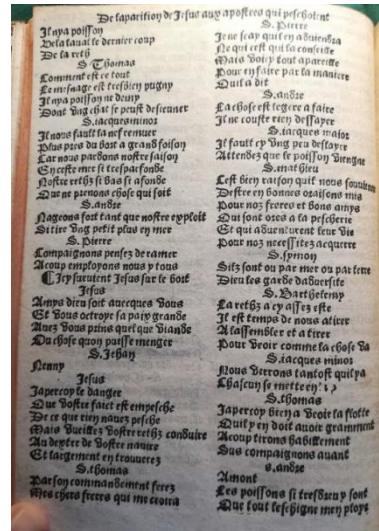 De laparition de Jesus aux apostres qui peschoient
Il nya poisson
Dela laual le dernier coup
De la reth
S Thomas
Comment est ce tout
Le mesnage est tresbien pugny
Il nya poisson ne demy
Dont vng chat se peust desieuner
S. iacques minor
Il nous fault la nef remuer
Plus pres du bort a grand foison
Car nous perdons nostre saison
En ceste mer si tresparfonde
Nostre reth si bas si afonde
Que ne prenons chose qui soit
S. andre
Nageons fort tant que nostre exploit
Si tire vng petit plus en mer
S. Pierre
Compaignons pensez de ramer
Acoup employons nous y tous
Icy suruient Jesus sur le bort
Jesus
Amys dieu soit auecques vous
Et vous octroye sa paix grande
Auez vous prins quelque viande
Ou chose quon puisse menger
S. Jehan
Nenny
Jesus
Japercoy le danger
Que vostre faict est empesche
De ce que rien nauez pesche
Mais vueillez vostre reth conduire
Au dextre de vostre nauire
Et largement en trouuerez
S. thomas
Par son commandement ferez
Mes chers freres qui me croira
S. Pierre
Je ne scay quil en aduiendra
Ne qui cest qui la conseille
Mais voicy tout apareille
Pour en faire par la maniere
Quil a dit
S. andre
La chose est legere a faire
Il ne couste rien dessayer
S. iacques maior
Il fault cy vng peu deslayer
Attendez que le poisson viengne
S. mathieu
Cest bien raison quil nous souuienne
Destre en bonnes oraisons mis
Pour noz freres et bons amys
Qui sont ores a la pescherie
Et qui aduenturent leur vie
Pour noz necessitez acquerre
S. symon
Silz sont ou par mer ou par terre
Dieu les garde daduersite
S. Barthelemy
La reth a cy assez este
Il est temps de nous atirer
A lassembler et a tirer
Pour veoir comme la chose va
S. iacques minor
Nous verrons tantost quil ya
Chascun se mette en
S. thomas
Japercoy bien a veoir la flotte
Quil y en doit auoir gramment
Acoup tirons habillement
Sus compaignons auant
S. andre
Amont
Les poissons si tresdru y sont
Que tout leschigne men ploye